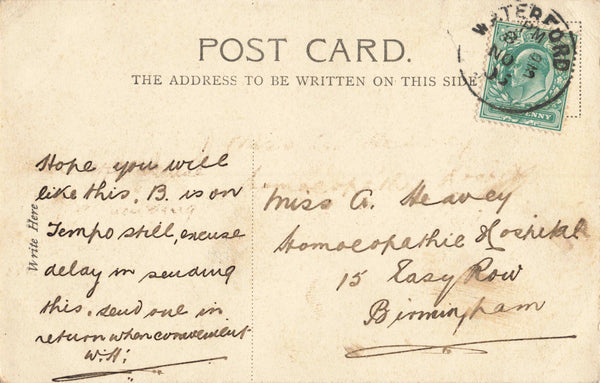 POST CARD.
THE ADDRESS TO BE WRITTEN ON THIS SIDE
WATERFORD
PM
NO
05
Write Here
Hope you will
like this. B. is on
Tempo still, excuse
delay in sending
this. send one in
return when convenient
W.H:
Miss A. Heavey
Homoeopathic Hospital
15 Easy Row
Birmingham